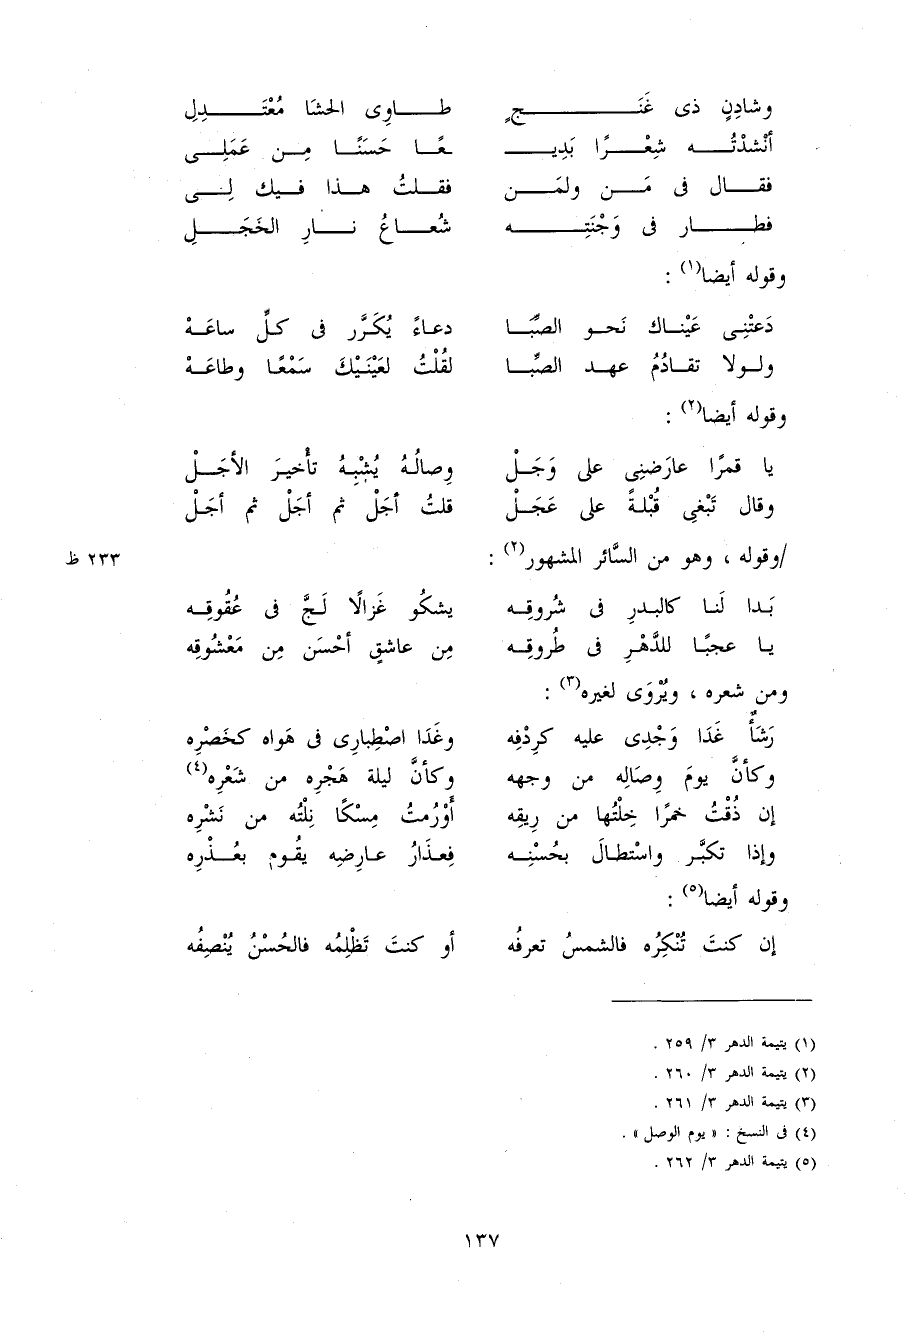 وشادِنٍ ذى غَنَجٍ طاوِى الحشَا مُعْتَدِلِ
أنْشَدْتُه شِعْرًا بَدِيـ ـعًا حَسَنًا مِن عَمَلِى
فقال فى مَن ولمَن فقلتُ هذا فيك لِى
فطار فى وَجْنَتِه شُعاعُ نارِ الخَجَلِ
وقوله أيضا(١) :
دَعَتْنِى عَيْناك نَحو الصِّبَا دعاءً يُكَرَّر فى كلِّ ساعَهْ
ولولا تقادُمُ عهد الصِّبَا لقُلْتُ لعَيْنَيْكَ سَمْعًا وطاعَهْ
وقوله أيضا(٢) :
يا قمرًا عارَضنِى على وَجَلْ وِصالُهُ يُشْبِهُ تأْخيرَ الأجَلْ
وقال تَبْغِى قُبْلةً على عَجَلْ قلتُ أجَلْ ثم أجَلْ ثم أجَلْ
/وقوله ، وهو من السَّائر المشهور(٢) : ٢٣٣ ظ
بَدا لَنا كالبدرِ فى شُروقِه يشكُو غَزالًا لَجَّ فى عُقُوقِه
يا عجبًا للدَّهْرِ فى طُروقِه مِن عاشقٍ أحْسَن مِن مَعْشُوقِه
ومن شعره ، ويُرْوَى لغيره(٣) :
رَشَأٌ غَدَا وَجْدِى عليه كرِدْفِه وغَدَا اصْطِبارِى فى هَواه كخَصْرِه
وكأنَّ يومَ وِصَالِه من وجهه وكأنَّ ليلة هَجْرِه من شَعْرِه(٤)
إن ذُقْتُ خمرًا خِلْتُها من رِيقِه أوْرُمتُ مِسْكًا نِلْتُه من نَشْرِه
وإذا تكبَّر واسْتطالَ بحُسْنِه فعِذَارُ عارِضِه يقُوم بعُذْرِه
وقوله أيضا(٥) :
إن كنتَ تُنْكِرُه فالشمسُ تعرفُه أو كنتَ تَظْلِمُه فالحُسْنُ يُنْصِفُه
(١) يتيمة الدهر ٣/ ٢٥٩ .
(٢) يتيمة الدهر ٣/ ٢٦٠ .
(٣) يتيمة الدهر ٣/ ٢٦١ .
(٤) فى النسخ : « يوم الوصل » .
(٥) يتيمة الدهر ٣/ ٢٦٢ .
١٣٧